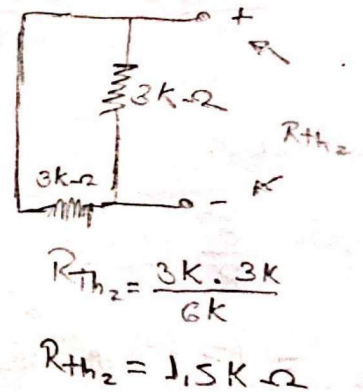 +
3K Ω
Rth₂
3K Ω
-
R_Th₂ = 3K . 3K / 6K
R_th₂ = 1,5K Ω